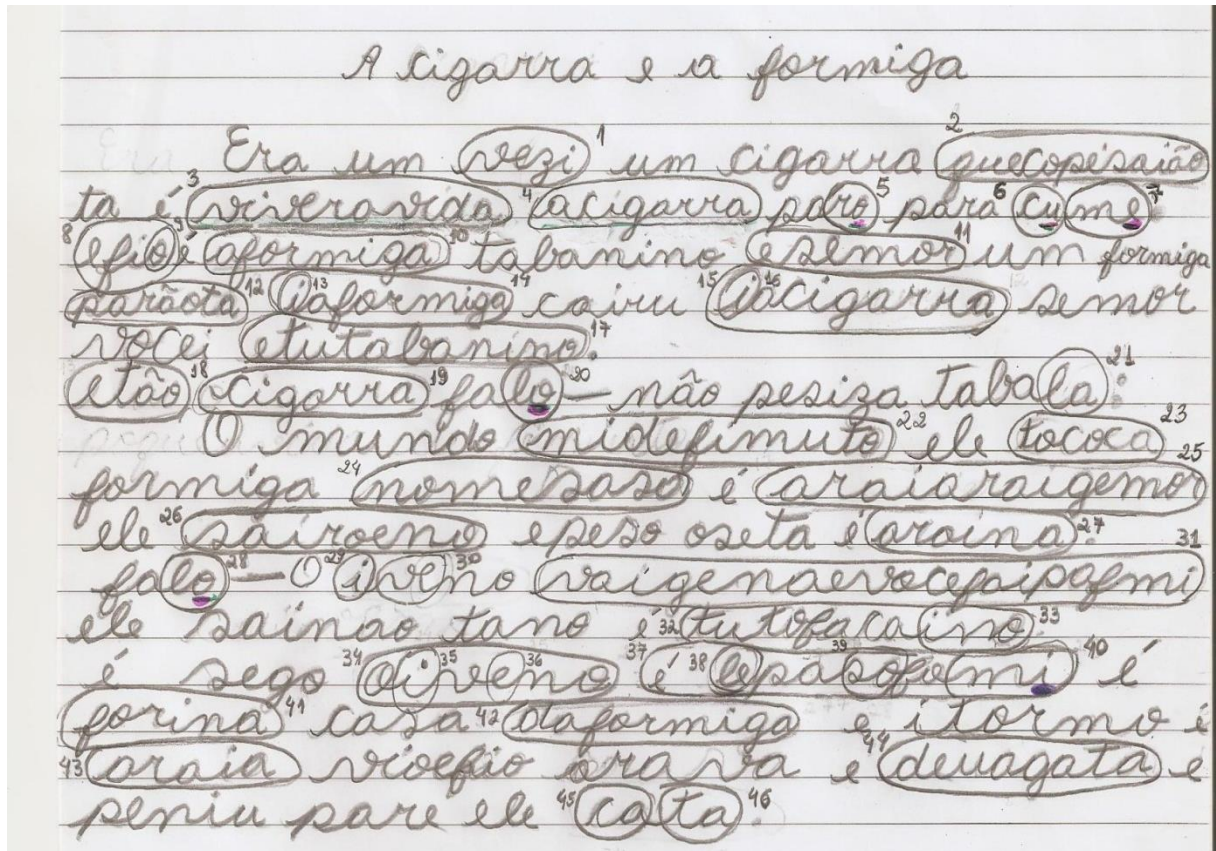 A cigarra e a formiga
Era um vezi 1 um cigarra 2 quecopesaião
ta é 3 viveravida 4 acigarra paro 5 para 6 cume 7
8 efio 9 é aformiga 10 tabanino esemor 11 um formiga
parãota 12 i 13 aformiga 14 cairu 15 i 16 acigarra semor
vocei etutabanino 17.
etão 18 cigarra 19 falo 20 — não pesiza tabala 21:
O mundo midefimuto 22 ele tococa 23
formiga 24 nomesaso é araiaraigemor 25
ele 26 sairoeno epeso oseta é araina 27
falo 28 — O 29 iveno 30 vaigenaevocefaipafmi 31
ele sainao tano é 32 tutofacaino 33
é sego 34 oi 35 veno 36 37 é 38 lepa 39 sofomi 40 é
forina 41 casa 42 daformiga e itormo é
43 araia vioefio arava e 44 deuagata e
peniu pare ele 45 cata 46.